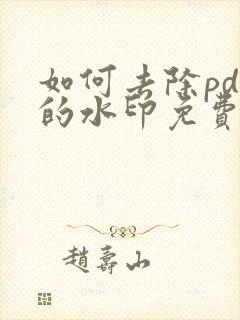 如何去除pd
的水印免費
趙壽山